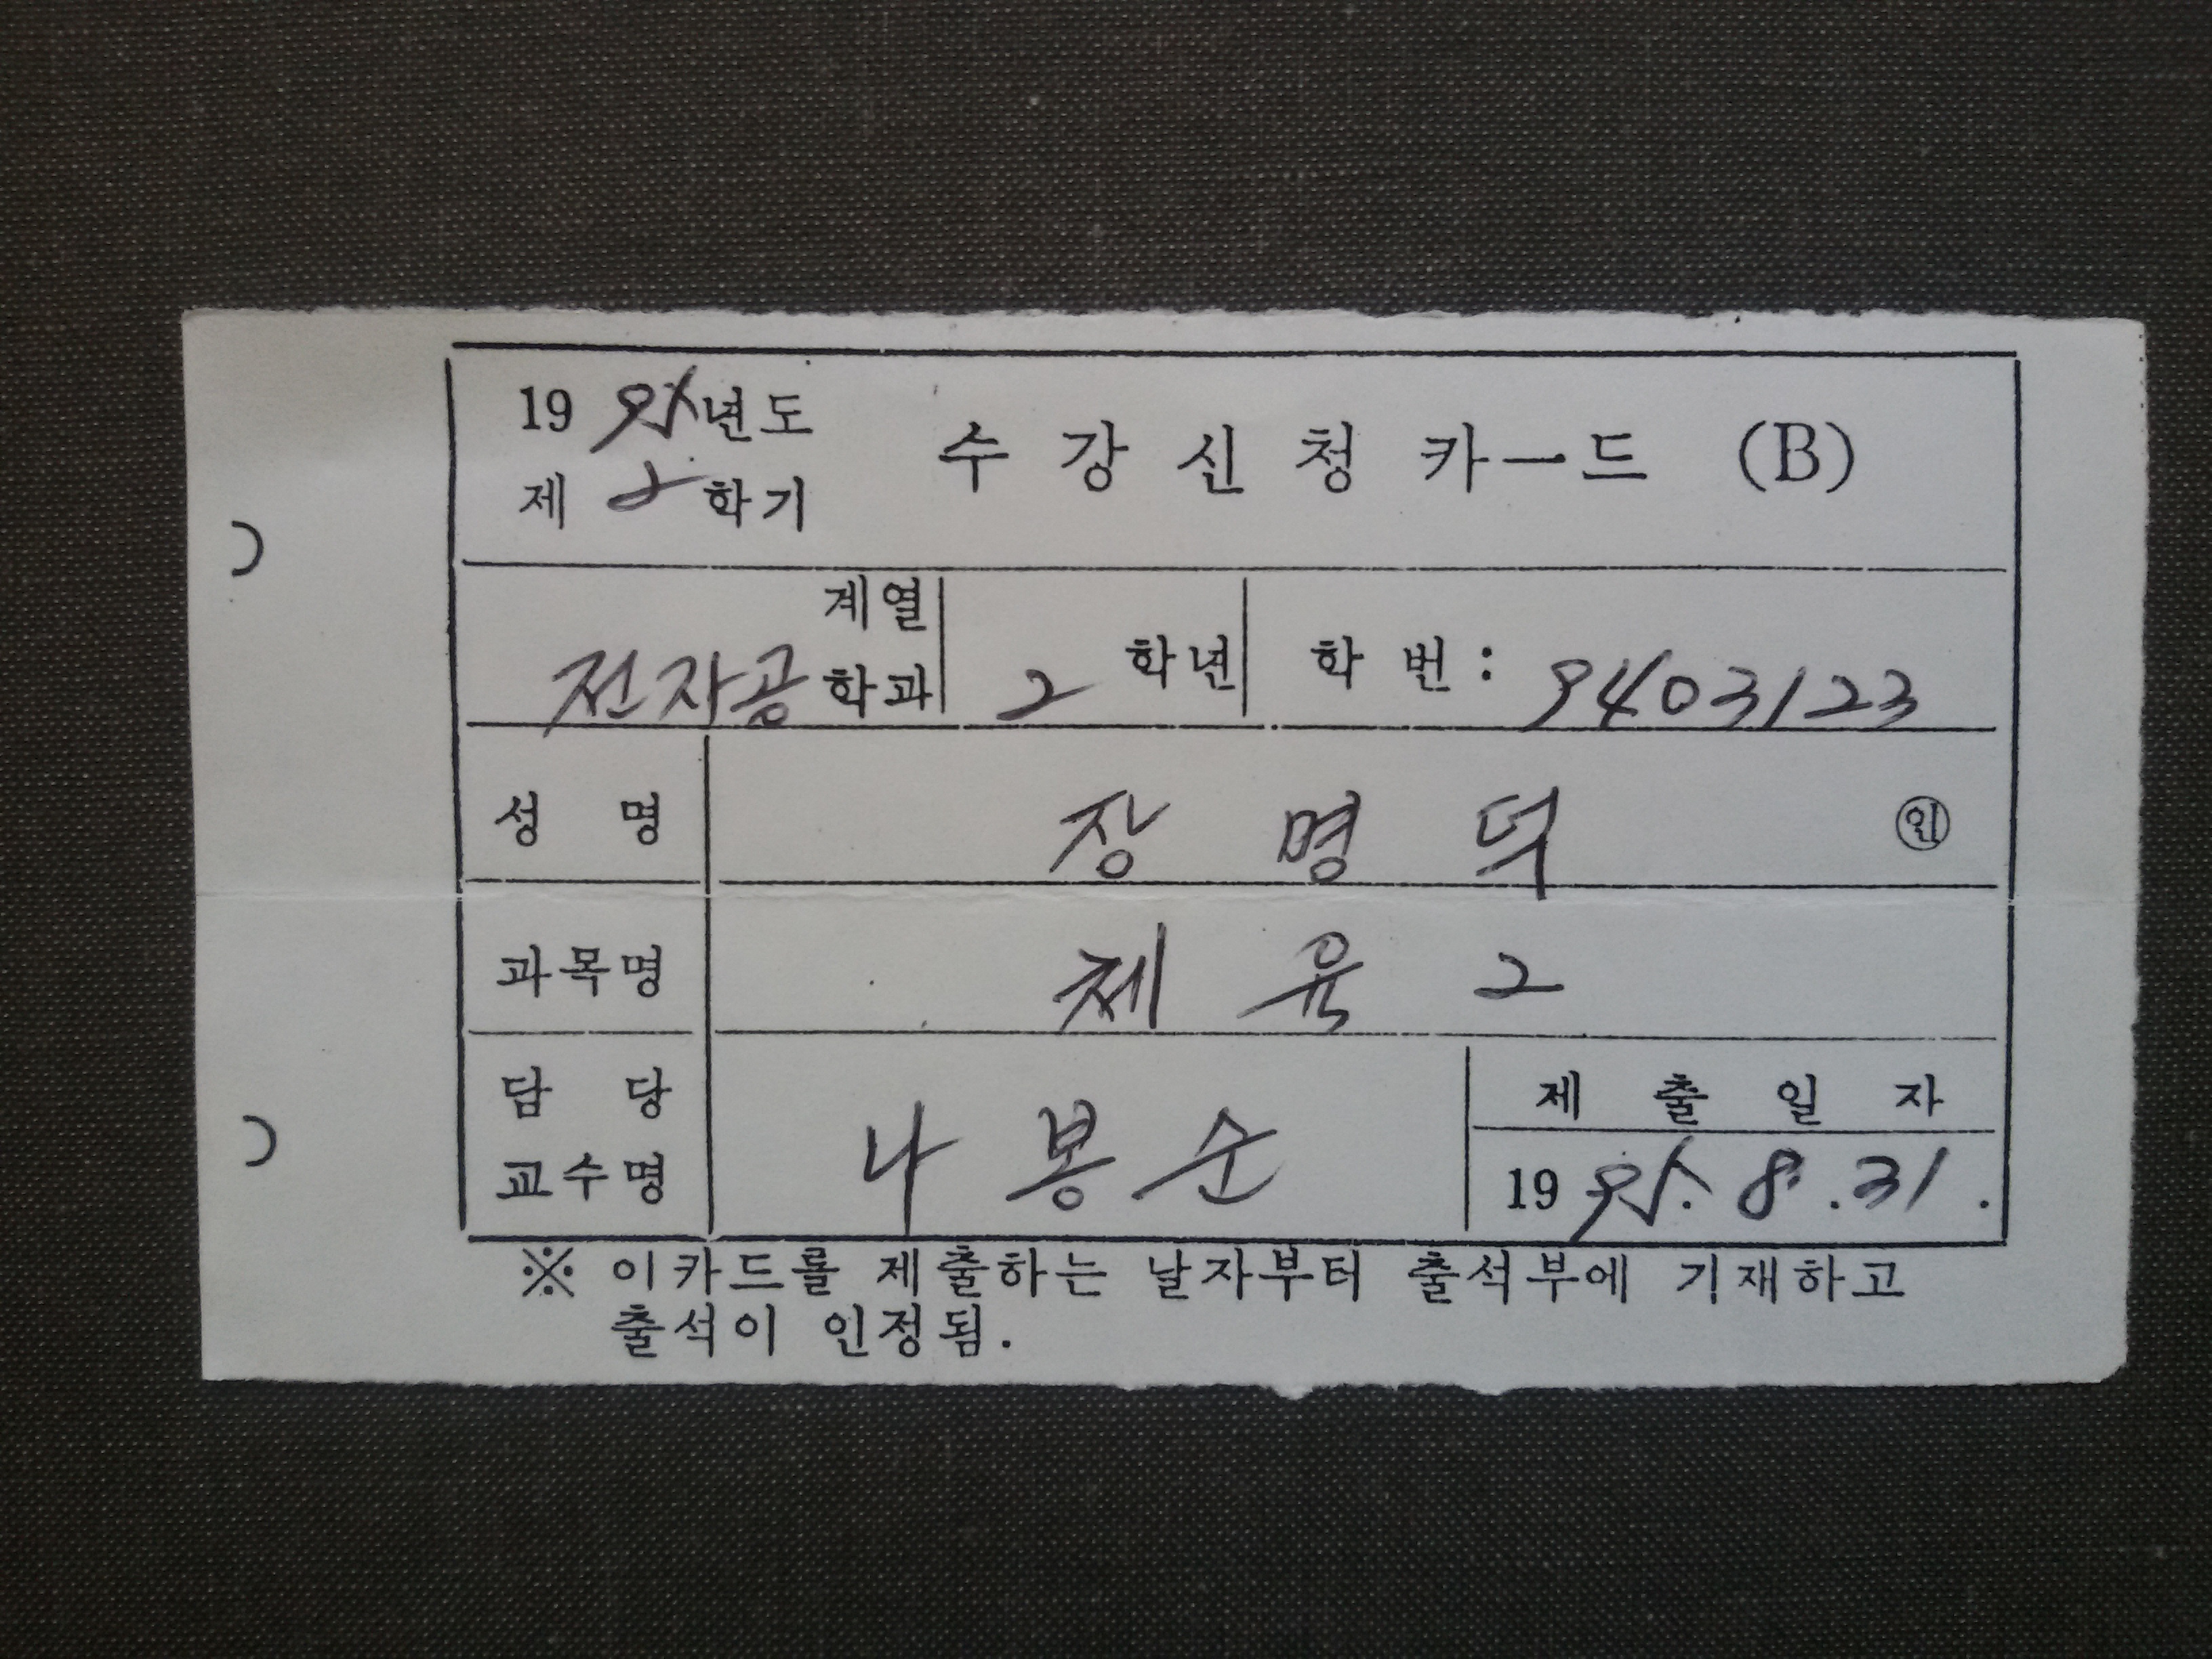 1995년도
제 2 학기
수강신청카ー드 (B)
계열
전자공 학과 2 학년 학번 : 9403123
성 명 장 명 덕 ㊞
과목명 체 육 2
담 당
교수명 나 봉 순
제 출 일 자
1995. 8. 31.
※ 이카드를 제출하는 날자부터 출석부에 기재하고
출석이 인정됨.